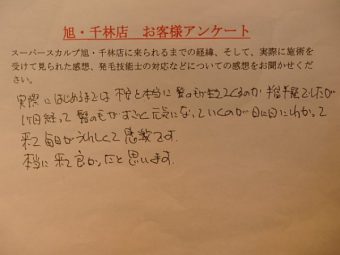 旭・千林店　お客様アンケート
スーパースカルプ旭・千林店に来られるまでの経緯、そして、実際に施術を
受けて見られた感想、発毛技能士の対応などについての感想をお聞かせくだ
さい。
実際にはじめるまでは 本当に髪の毛が生えてくるのか 半信半疑でしたが
1ヶ月経って 髪の毛が すごく元気になっていくのが 日に日にわかって
来て 毎日が うれしくて 感激です。
本当に 来て良かったと 思います。